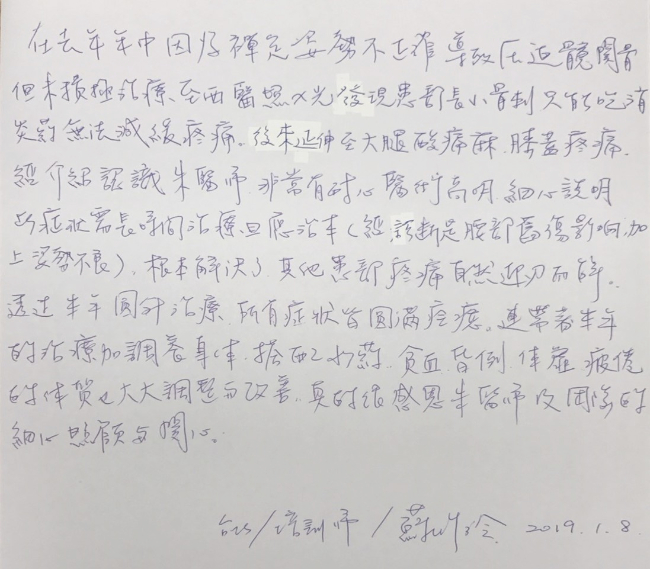 在去年年中因為禪定姿勢不正確導致压迫髖關骨
但未積極治療、至西醫照X光發現患部長小骨刺只能吃消
炎藥無法減緩疼痛。後來延伸至大腿酸痛麻.膝蓋疼痛.
經介紹認識朱醫師.非常有耐心醫術高明.細心說明
此症狀需長時間治療且應治本(經診斷是腰部舊傷影响,加
上姿勢不良).根本解決了.其他患部疼痛自然迎刃而解。
透过半年圓針治療.所有症狀皆圓滿痊癒。連帶著半年
的治療加調養身体.搭配水藥.貧血.昏倒.体虛疲倦
的体質也大大調整与改善.真的很感恩朱醫師及団隊的
細心照顧与関心。
/培訓師/蘇 玲 2019.1.8